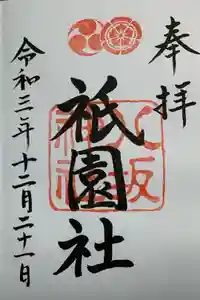 奉拝
祇園社
八坂神社
令和三年十二月二十一日